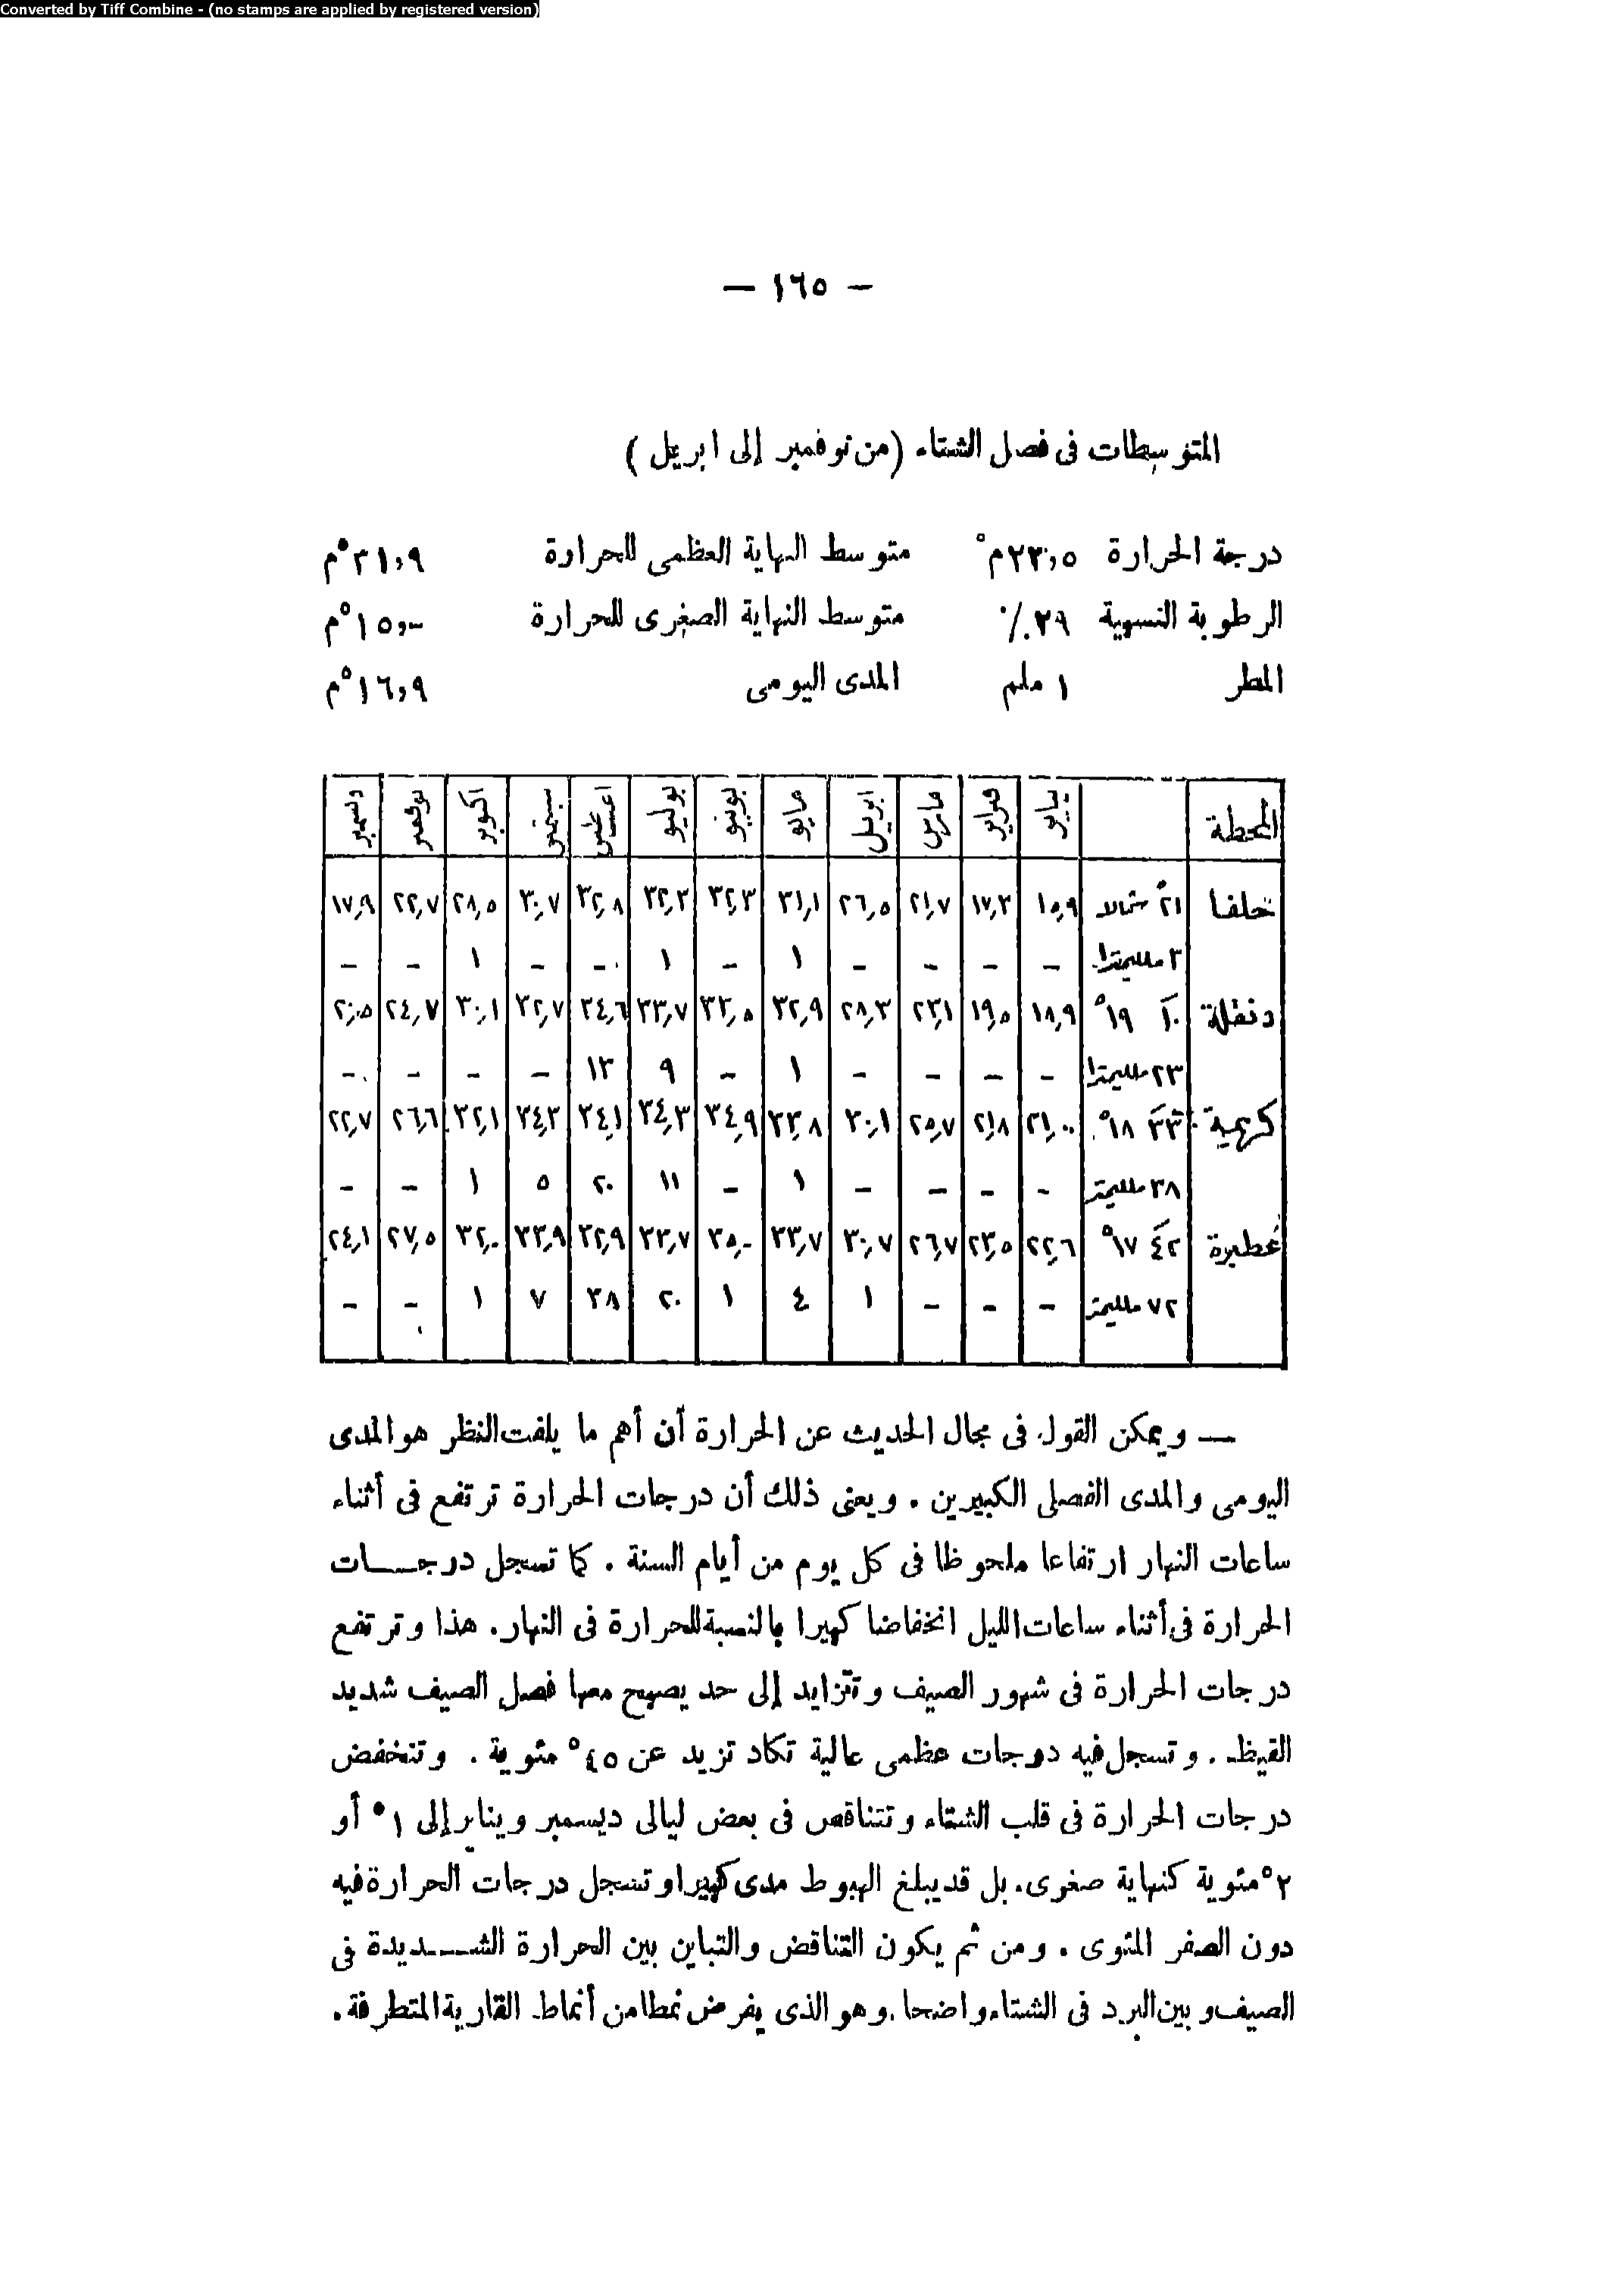 Converted by Tiff Combine - (no stamps are applied by registered version)
— ١٦٥ —
المتوسطات فى فصل الشتاء (من نوفمبر إلى ابريل)
درجة الحرارة ٢٣,٥م° متوسط النهاية العظمى للحرارة ٣١,٩°م
الرطوبة النسبية ٢٩٪ متوسط النهاية الصغرى للحرارة ١٥,-°م
المطر ١ ملم المدى اليومى ١٦,٩°م
المحطة يناير فبراير مارس ابريل مايو يونيو يوليو اغسطس سبتمبر اكتوبر نوفمبر ديسمبر
حلفا ٢١° شمالا ١٥,٩ ١٧,٣ ٢١,٧ ٢٦,٥ ٣١,١ ٣٢,٣ ٣٢,٣ ٣٢,٨ ٣٠,٧ ٢٨,٥ ٢٢,٧ ١٧,٩
٣ ملليمترا - - - - ١ - ١ - - ١ - -
دنقلة ١٠ ١٩° ١٨,٩ ١٩,٥ ٢٣,١ ٢٨,٣ ٣٢,٩ ٣٣,٥ ٣٣,٧ ٣٤,٦ ٣٢,٧ ٣٠,١ ٢٤,٧ ٢٠,٥
٢٣ ملليمترا - - - - ١ - ٩ ١٣ - - - -
كريمة ٣٣ ١٨° ٢١,٠٠ ٢١,٨ ٢٥,٧ ٣٠,١ ٣٣,٨ ٣٤,٩ ٣٤,٣ ٣٤,١ ٣٤,٣ ٣٢,١ ٢٦,٦ ٢٢,٧
٣٨ ملليمتر - - - - ١ - ١١ ٢٠ ٥ ١ - -
عطبرة ٤٢ ١٧° ٢٢,٦ ٢٣,٥ ٢٦,٧ ٣٠,٧ ٣٣,٧ ٣٥,- ٣٣,٧ ٣٢,٩ ٣٣,٩ ٣٢,٠ ٢٧,٥ ٢٤,١
٧٢ ملليمتر - - - ١ ٤ ١ ٢٠ ٣٨ ٧ ١ - -
— ويمكن القول فى مجال الحديث عن الحرارة أن أهم ما يلفت النظر هو المدى
اليومى والمدى الفصلى الكبيرين . ويعنى ذلك أن درجات الحرارة ترتفع فى أثناء
ساعات النهار ارتفاعا ملحوظا فى كل يوم من أيام السنة . كما تسجل درجــات
الحرارة فى أثناء ساعات الليل انخفاضا كبيرا بالنسبة للحرارة فى النهار. هذا وترتفع
درجات الحرارة فى شهور الصيف وتتزايد إلى حد يصبح معها فصل الصيف شديد
القيظ . وتسجل فيه درجات عظمى عالية تكاد تزيد عن ٤٥° مئوية . وتنخفض
درجات الحرارة فى قلب الشتاء وتتناقص فى بعض ليالى ديسمبر ويناير إلى ١° أو
٢° مئوية كنهاية صغرى. بل قد يبلغ الهبوط مدى كبيرا وتسجل درجات الحرارة فيه
دون الصفر المئوى . ومن ثم يكون التناقض والتباين بين الحرارة الشــديدة فى
الصيف وبين البرد فى الشتاء واضحا . وهو الذى يفرض نمطا من أنماط القارية المتطرفة .